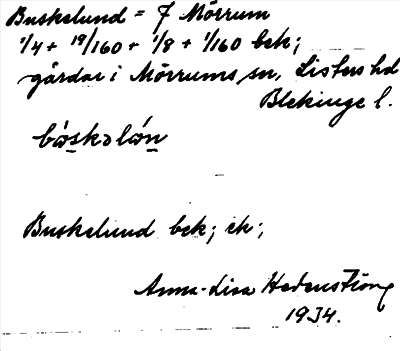 Buskelund = 7 Mörrum
1/4 + 19/160 + 1/8 + 1/160 bek;
gårdar i Mörrums sn, Listers hd
Blekinge l.
bo̱skəlo̱n
Buskelund bek; ek;
Anna-Lisa Hedenström
1934.